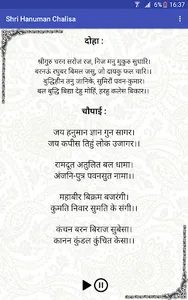 16:37
Shri Hanuman Chalisa
दोहा :
श्रीगुरु चरन सरोज रज, निज मनु मुकुरु सुधारि।
बरनऊं रघुबर बिमल जसु, जो दायकु फल चारि।।
बुद्धिहीन तनु जानिके, सुमिरौं पवन-कुमार।
बल बुद्धि बिद्या देहु मोहिं, हरहु कलेस बिकार।।
चौपाई :
जय हनुमान ज्ञान गुन सागर।
जय कपीस तिहुं लोक उजागर।।
रामदूत अतुलित बल धामा।
अंजनि-पुत्र पवनसुत नामा।।
महाबीर बिक्रम बजरंगी।
कुमति निवार सुमति के संगी।।
कंचन बरन बिराज सुबेसा।
कानन कुंडल कुंचित केसा।।